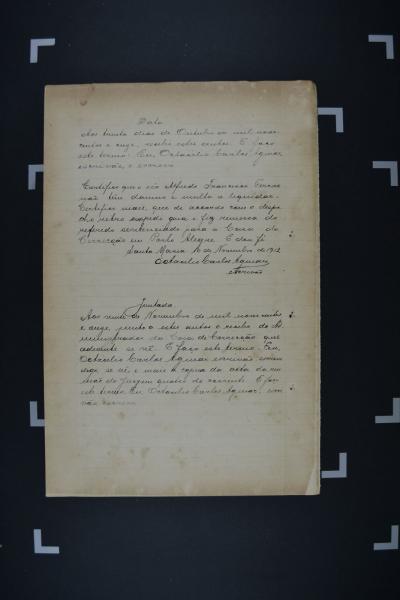 Data
Aos trinta dias de Outubro de mil nove
centos e onze, recebi estes autos. E faço
este termo. Eu, Octacilio Carlos Aguiar,
escrivão, o escrevi
Certifico que o réo Alfredo Francisco
não tem damno e multa a liquidar.
Certifico mais, que de accordo com o despa
cho retro expedi guia e fiz remessa do
referido sentenciado para a Casa de
Correcção em Porto Alegre. E dou fé
Santa Maria 16 de Novembro de 1912
Octacilio Carlos Aguiar
escrivão
Juntada
Aos de Novembro de mil novecentos
e onze, junto a estes autos o recibo do Ad
ministrador da Casa de Correcção que
adiante se vê. E faço este termo. Eu,
Octacilio Carlos Aguiar escrivão escrevi
digo, se vê e mais a copia da acta da
do jury em quatro do corrente. E faço
este termo. Eu, Octacilio Carlos Aguiar, escri
vão escrevi